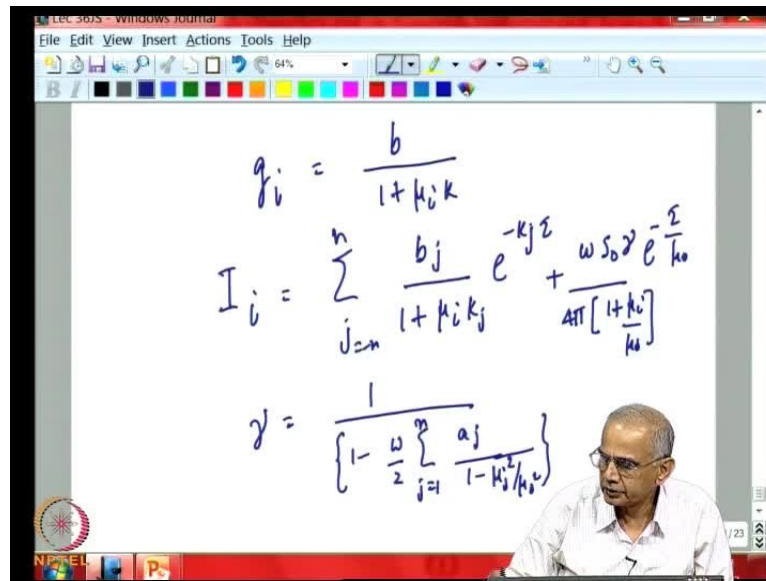 Lec 36JS - Windows Journal
File Edit View Insert Actions Tools Help
64%
B I
g_i = b / (1 + μ_i k)
I_i = Σ_{j=-n}^{n} b_j / (1 + μ_i k_j) e^{-k_j τ} + ω S_0 γ e^{-τ/μ_0} / 4π [1 + μ_i/μ_0]
γ = 1 / {1 - ω/2 Σ_{j=1}^{n} a_j / (1 - μ_j²/μ_0²)}
/23
NPTEL